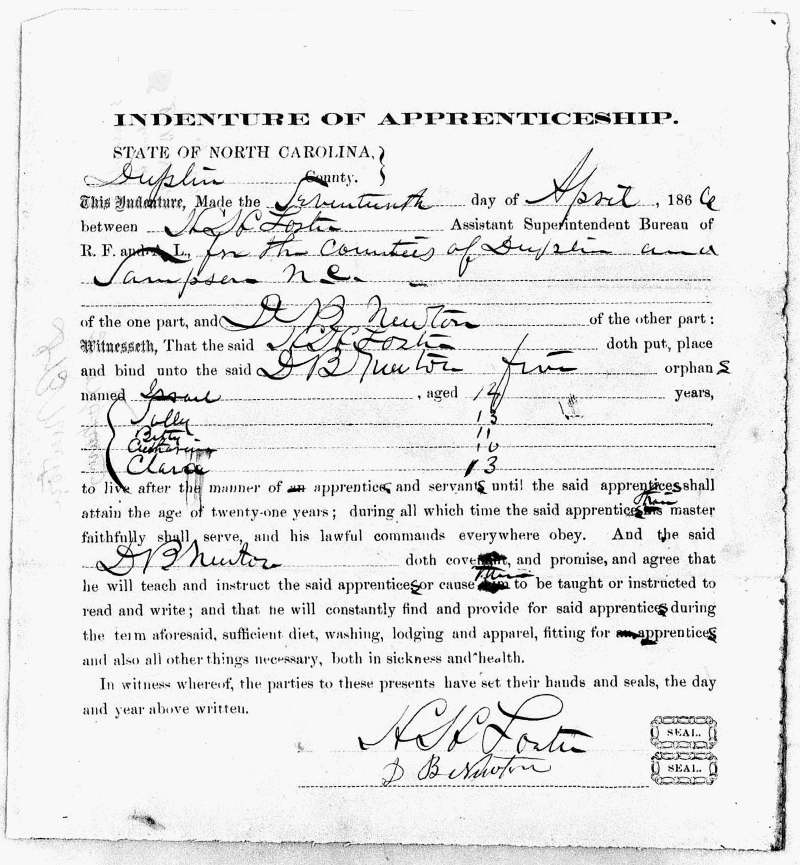 INDENTURE OF APPRENTICESHIP.
STATE OF NORTH CAROLINA,
Duplin County.
This Indenture, Made the Seventeenth day of April, 1866
between H H Foster Assistant Superintendent Bureau of
R. F. and A. L., for the Counties of Duplin and
Sampson N.C.
of the one part, and D B Newton of the other part:
Witnesseth, That the said H H Foster doth put, place
and bind unto the said D B Newton five orphans
named Israel, aged 14 years,
13
Betty 11
Catharine 10
Clara 13
to live after the manner of an apprentices and servants until the said apprentices shall
attain the age of twenty-one years; during all which time the said apprentices their master
faithfully shall serve, and his lawful commands everywhere obey. And the said
D B Newton doth covenant, and promise, and agree that
he will teach and instruct the said apprentices or cause them to be taught or instructed to
read and write; and that he will constantly find and provide for said apprentices during
the term aforesaid, sufficient diet, washing, lodging and apparel, fitting for an apprentices
and also all other things necessary, both in sickness and health.
In witness whereof, the parties to these presents have set their hands and seals, the day
and year above written.
H H Foster SEAL.
D B Newton SEAL.